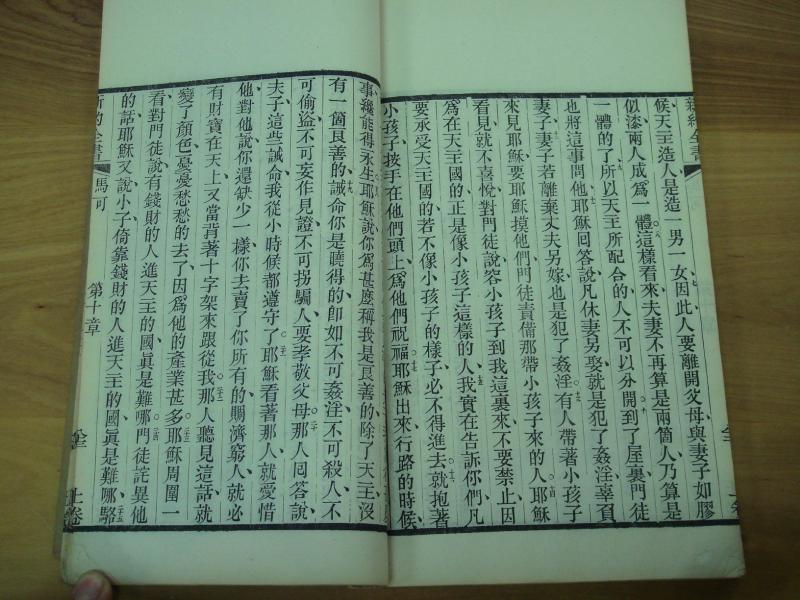 新約全書
候天主造人是造一男一女因此人要離開父母與妻子如膠
似漆兩人成爲一體這樣看來夫妻不再算是兩箇人乃算是
一體的了所以天主所配合的人不可以分開到了屋裏門徒
也將這事問他耶穌回答說凡休妻另娶就是犯了姦淫辜負
妻子妻子若離棄丈夫另嫁也是犯了姦淫有人帶著小孩子
來見耶穌要耶穌摸他們門徒責備那帶小孩子來的人耶穌
看見就不喜悅對門徒說容小孩子到我這裏來不要禁止因
爲在天主國的正是像小孩子這樣的人我實在告訴你們凡
要承受天主國的若不像小孩子的樣子必不得進去就抱著
小孩子按手在他們頭上爲他們祝福耶穌出來行路的時候
事纔能得永生耶穌說你爲甚麼稱我是良善的除了天主沒
有一箇良善的誡命你是曉得的卽如不可姦淫不可殺人不
可偷盜不可妄作見證不可拐騙人要孝敬父母那人回答說
夫子這些誡命我從小時候都遵守了耶穌看著那人就愛惜
他對他說你還缺少一樣你去賣了你所有的賙濟窮人就必
有財寶在天上又當背著十字架來跟從我那人聽見這話就
變了顏色憂憂愁愁的去了因爲他的產業甚多耶穌周圍一
看對門徒說有錢財的人進天主的國眞是難哪門徒詫異他
的話耶穌又說小子倚靠錢財的人進天主的國眞是難哪駱
新約全書 馬可 第十章 上卷